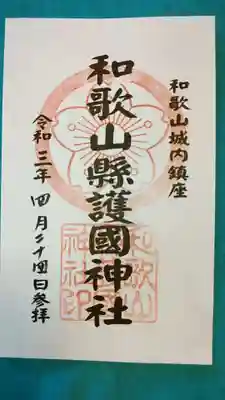 和歌山城内鎮座
和歌山縣護國神社
令和三年四月二十四日参拝